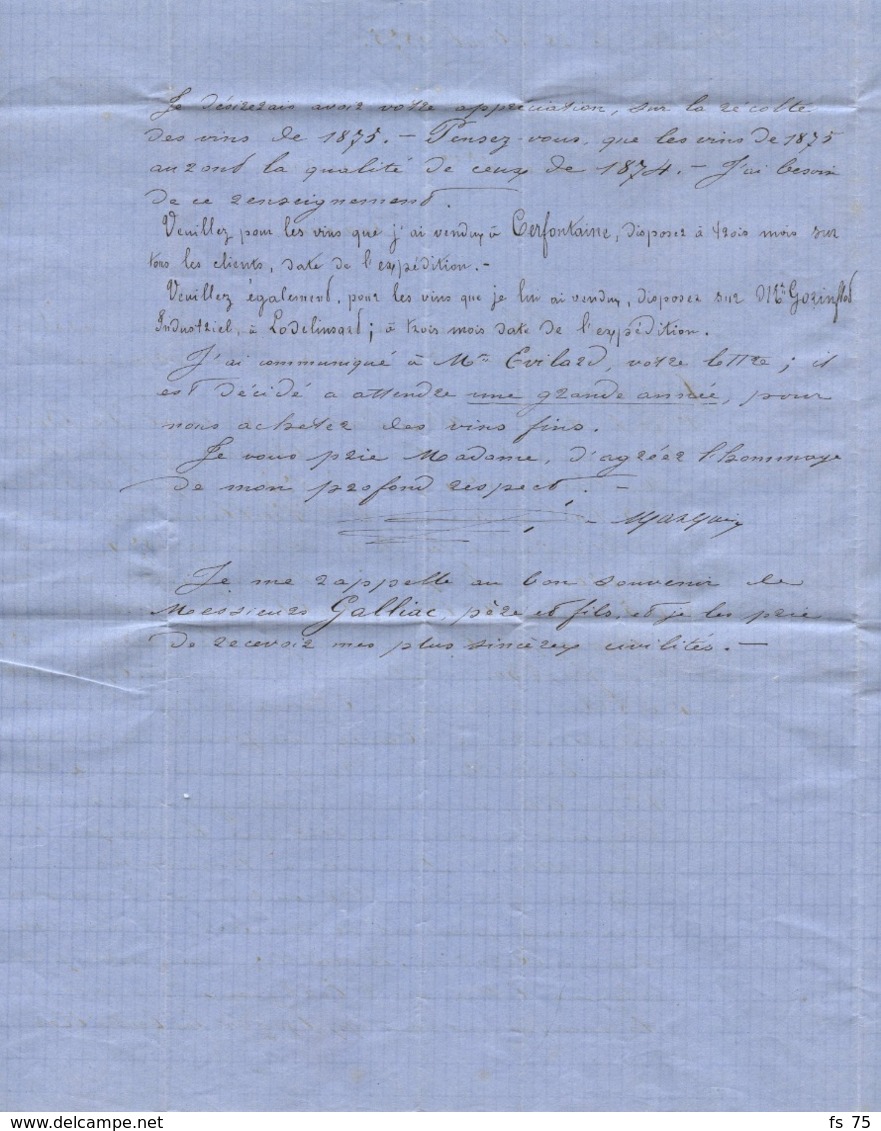 Je désirerais avoir votre appréciation, sur la récolte
des vins de 1875. — Pensez-vous, que les vins de 1875
auront la qualité de ceux de 1874. — J'ai besoin
de ce renseignement.
Veuillez pour les vins que j'ai vendus à Cerfontaine, disposer à trois mois sur
tous les clients, date de l'expédition. —
Veuillez également, pour les vins que je lui ai vendus, disposer sur Mr.
Industriel, à Lodelinsart; à trois mois date de l'expédition.
J'ai communiqué à Mr. Evilard, votre lettre; il
est décidé a attendre une grande année, pour
nous acheter des vins fins.
Je vous prie Madame, d'agréer l'hommage
de mon profond respect. —
Je me rappelle au bon souvenir de
Messieurs Galliac, père et fils, et je les prie
de recevoir mes plus sincères civilités. —
delcampe.net
fs 75